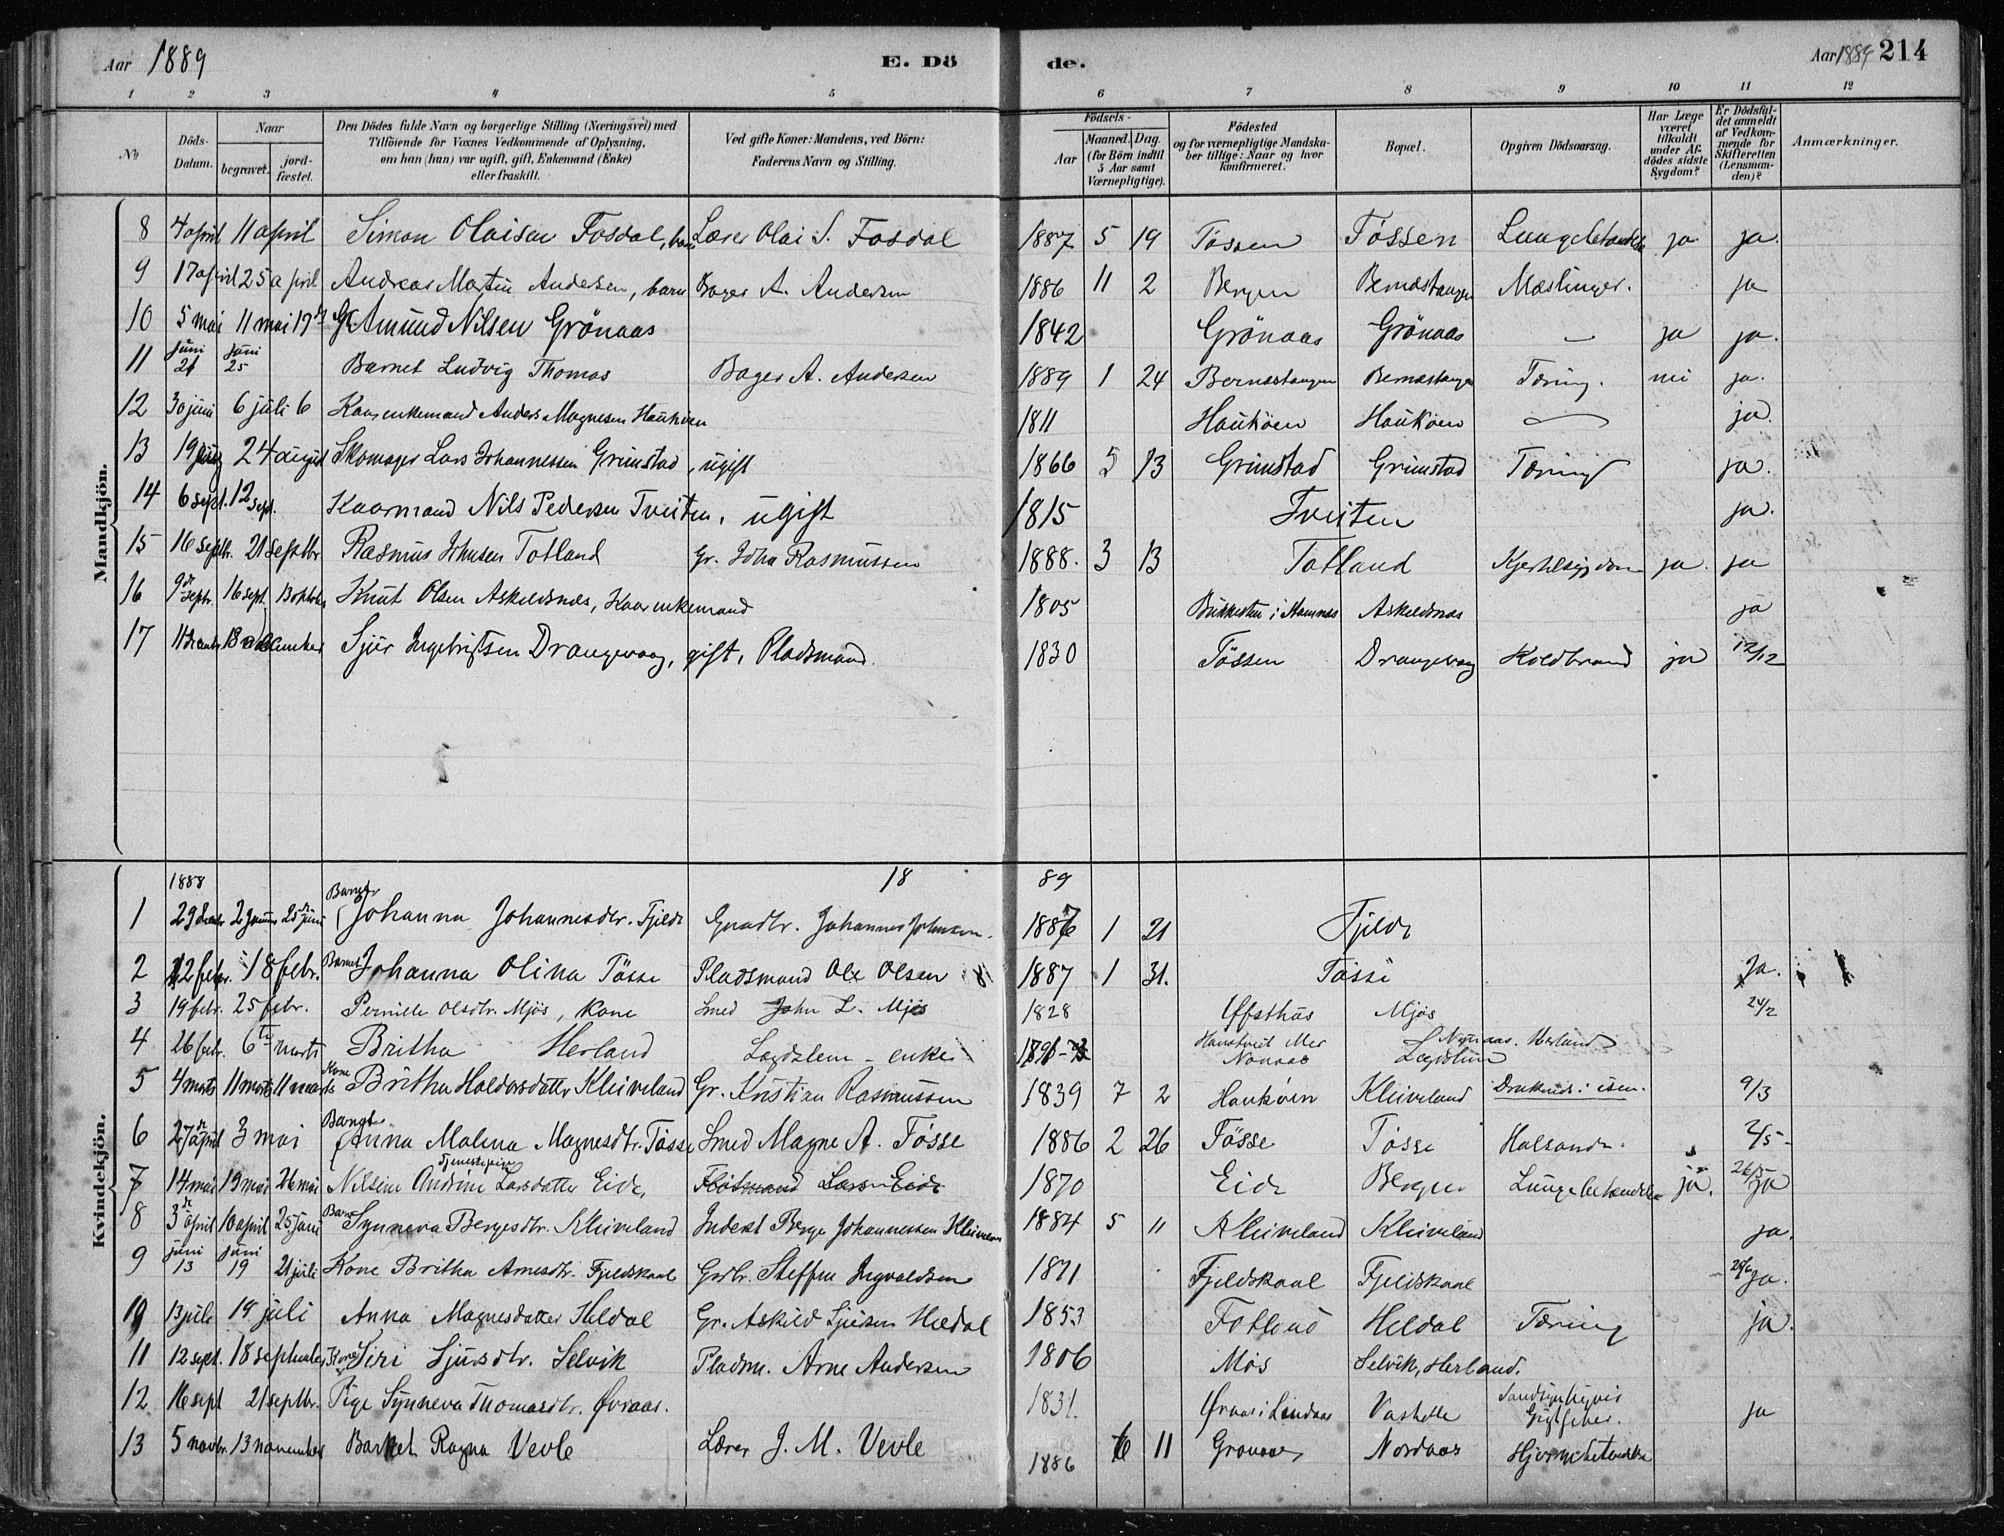 Aar 1889 E. Dö de. Aar 1889 214
1 2 3 4 5 6 7 8 9 10 11 12
No Döds-Datum. Naar begravet. jordfæstet. Den Dödes fulde Navn og borgerlige Stilling (Næringsvei) med Tilföiende for Voxnes Vedkommende af Oplysning, om han (hun) var ugift, gift, Enkemand (Enke) eller fraskilt. Ved gifte Koner: Mandens, ved Börn: Faderens Navn og Stilling. Födsels- Aar Maaned. Dag. (for Börn indtil 5 Aar samt Værnepligtige). Födested og for værnepligtige Mandskaber tillige: Naar og hvor konfirmeret. Bopæl. Opgiven Dödsaarsag. Har Læge været tilkaldt under Afdödes sidste Sygdom? Er Dödsfaldet anmeldt af Vedkommende for Skifteretten (Lensmanden)? Anmærkninger.
Mandkjön.
8 4 april 11 april Simon Olaisen Fosdal, barn Lærer Olai S. Fosdal 1887 5 19 Tössen Tössen Lungebetændelse ja ja.
9 17 april 25 april Andreas Martin Andersen, barn Bager A. Andersen 1886 11 2 Bergen Bernastangen Mæslinger. ja
10 5 mai 11 mai 19 Amund Nilsen Grönaas 1842 Grönaas Grönaas — ja ja.
11 juni 21 juni 25 Barnet Ludvig Thomas Bager A. Andersen 1889 1 24 Bernastangen Bernastangen Tæring. nei ja.
12 30 juni 6 juli 6 Kaarenkemand Anders Magnesen Haukøen 1811 Haukøen Haukøen — ja.
13 19 aug 24 august Skomager Lars Johannessen Grimstad, ugift 1866 5 13 Grimstad Grimstad Tæring ja.
14 6 sept. 12 sept. Kaarmand Nils Pedersen Tveiten, ugift 1815 Tveiten ja.
15 16 septbr. 21 septbr Rasmus Johnsen Totland Gr. John Rasmussen 1888. 3 13 Totland Kjertelsygdom ja. ja
16 9de septr. 16 sept. 13 oktober Knut Olsen Askeldsnæs, Kaarenkemand 1805 i Hamnæs Askeldsnæs ja
17 11 december Sjur Ingebrigtsen Drangevaag, gift, Pladsmand. 1830 Tössen Drangevaag Koldbrand ja 12/12
Kvindekjön.
1888 18 89
1 29 2 25de juni Barnet Johanna Johannesdtr. Fjelde Gaardbr. Johannes Johnsen. 1887 1 21 Fjelde
2 12 febr. 18 febr. Barnet Johanna Olina Tösse Pladsmand Ole Olsen 1887 1 31. Tösse Ja.
3 19 febr. 25 febr. Pernille Olsdtr. Mjös, kone Smed John L. Mjös 1828 Øfsthus Mjös 24/2
4 26 febr. 6te marts Britha Herland Lægdslem - enke Nonaas Nonaas Herland Lægdslem
5 4 marts 11 marts 11 marts Kone Britha Haldorsdatter Kleiveland Gr. Kristian Rasmussen 1839 7 2 Haukøen Kleiveland Druknede i isen. 9/3
6 27de april 3 mai Barnet Anna Malena Magnesdtr. Tösse Smed Magne A. Tösse 1886 2 26 Tösse Tösse Halsonde. 2/5
7 14 mai 19 mai 26 mai Nilsine Andrine Larsdatter Eide, Tjenestepige Flötmand Lars Eide 1870 Eide Bergen Lungebetændelse ja. 26/5 ja
8 3de april 10 april 25 juni Barn Synneva Bergesdtr. Kleiveland Inderst Berge Johannessen Kleiveland 1884 5 11 Kleiveland Kleiveland ja.
9 juni 13 juni 19 21 juli Kone Britha Arnesdtr. Fjeldskaal Grdbr. Steffen Ingvaldsen Fjeldskaal Fjeldskaal ja.
10 13 juli 19 juli Anna Magnesdatter Heldal Gr. Askild Sjursen Heldal 1853 Totland Heldal Tæring ja.
11 12 sept. 18 september Kone Siri Sjursdtr. Selvik Pladsm. Arne Andersen 1806 Mös Selvik, Herland.
12 16 sept 21 septbr. Pige Synneva Thomasdtr. Øvraas. 1831. Øvraas i Lindaas Vaskelle Sandsynligvis Gigtfeber. ja
13 5 novbr. 13 november Barnet Ragna Vevle Lærer J. M. Vevle 1886 6 11 Grönaas Nordaas Hjernebetændelse